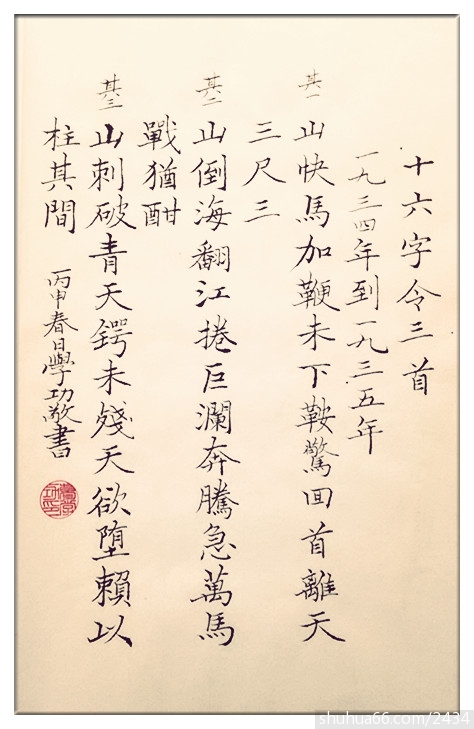 十六字令三首
一九三四年到一九三五年
其一 山快馬加鞭未下鞍驚回首離天
三尺三
其二 山倒海翻江捲巨瀾奔騰急萬馬
戰猶酣
其三 山刺破青天鍔未殘天欲堕賴以
柱其間 丙申春日學功敬書
shuhua66.com/2434